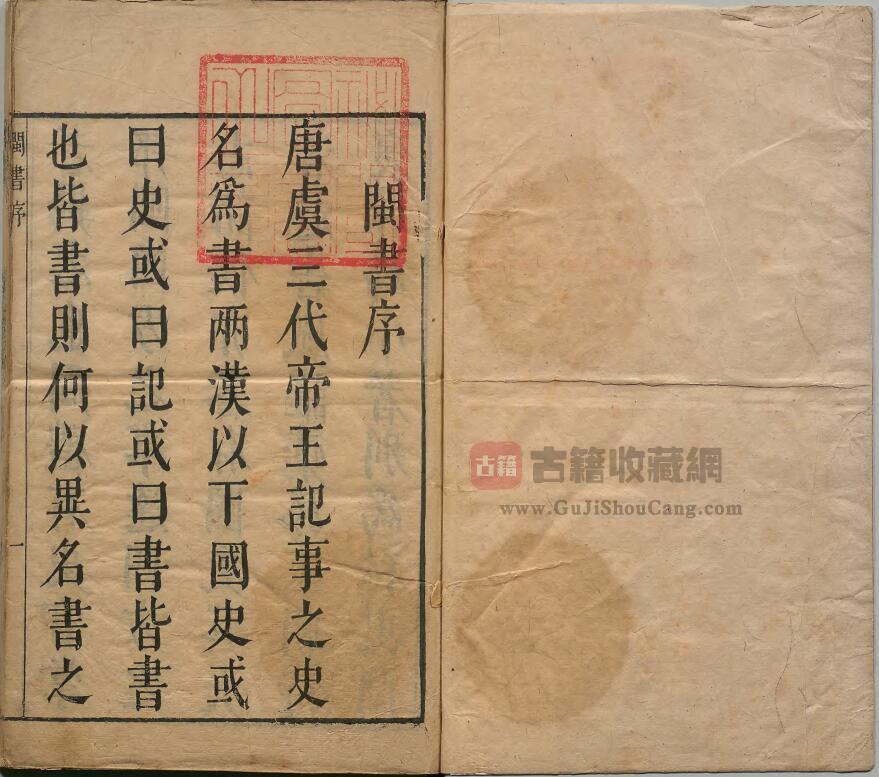 閩書序
唐虞三代帝王記事之史
名爲書两漢以下國史或
曰史或曰記或曰書皆書
也皆書則何以異名書之
閩書序
一
古籍
古籍收藏網
www.GuJiShouCang.com